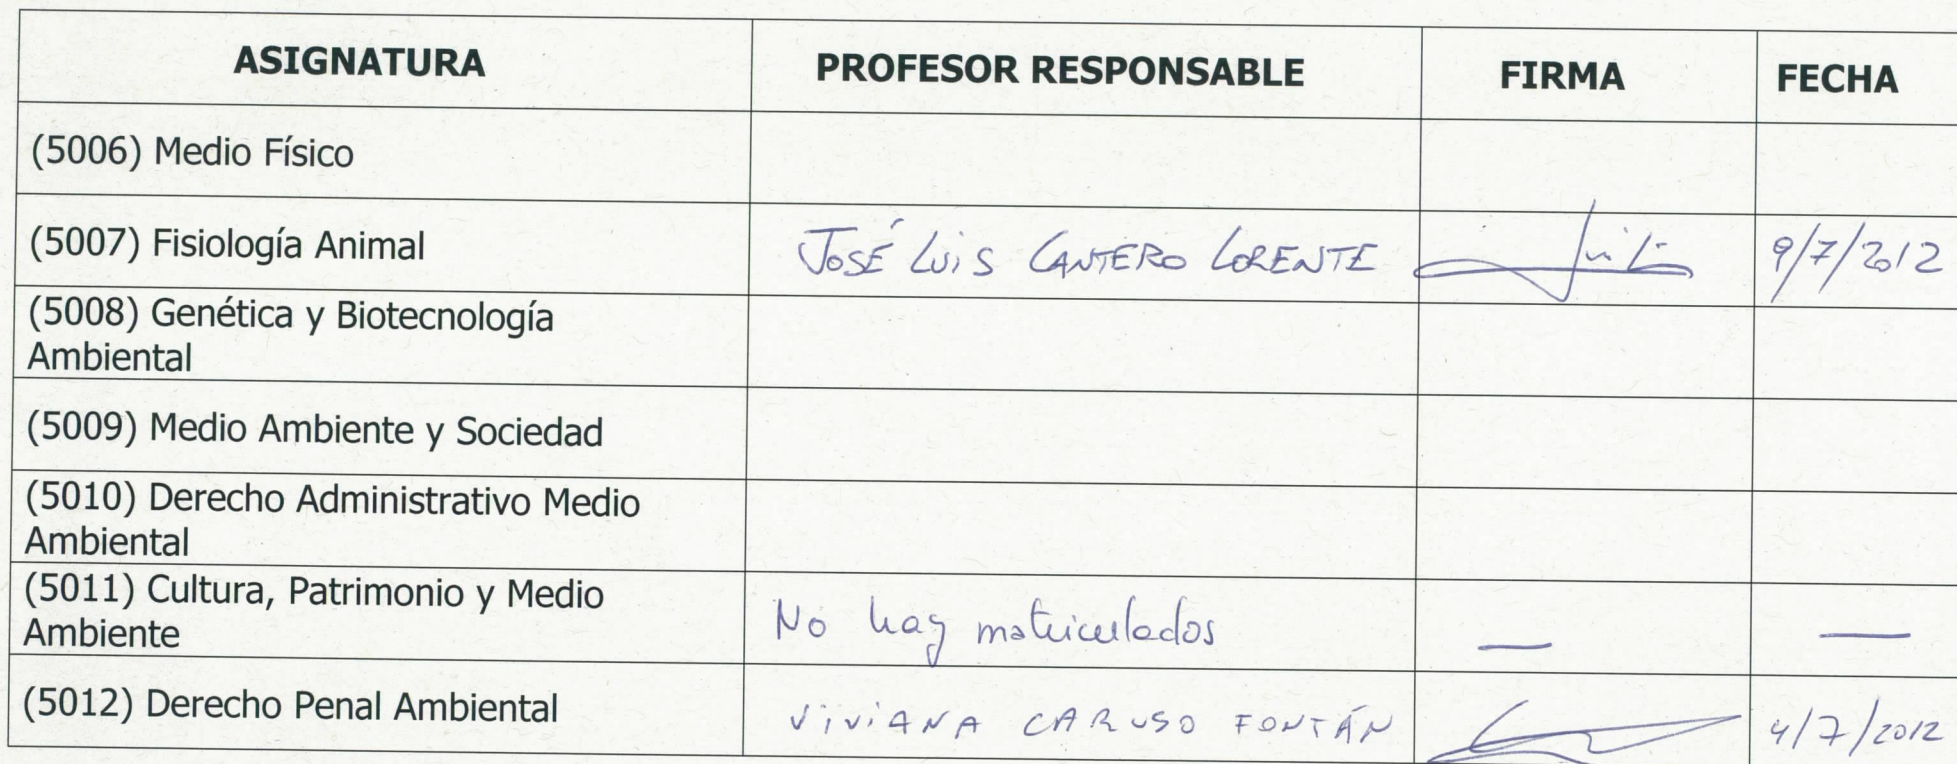 ASIGNATURA PROFESOR RESPONSABLE FIRMA FECHA
(5006) Medio Físico
(5007) Fisiología Animal JOSÉ LUIS CANTERO LORENTE 9/7/2012
(5008) Genética y Biotecnología
Ambiental
(5009) Medio Ambiente y Sociedad
(5010) Derecho Administrativo Medio
Ambiental
(5011) Cultura, Patrimonio y Medio
Ambiente No hay matriculados — —
(5012) Derecho Penal Ambiental VIVIANA CARUSO FONTÁN 4/7/2012